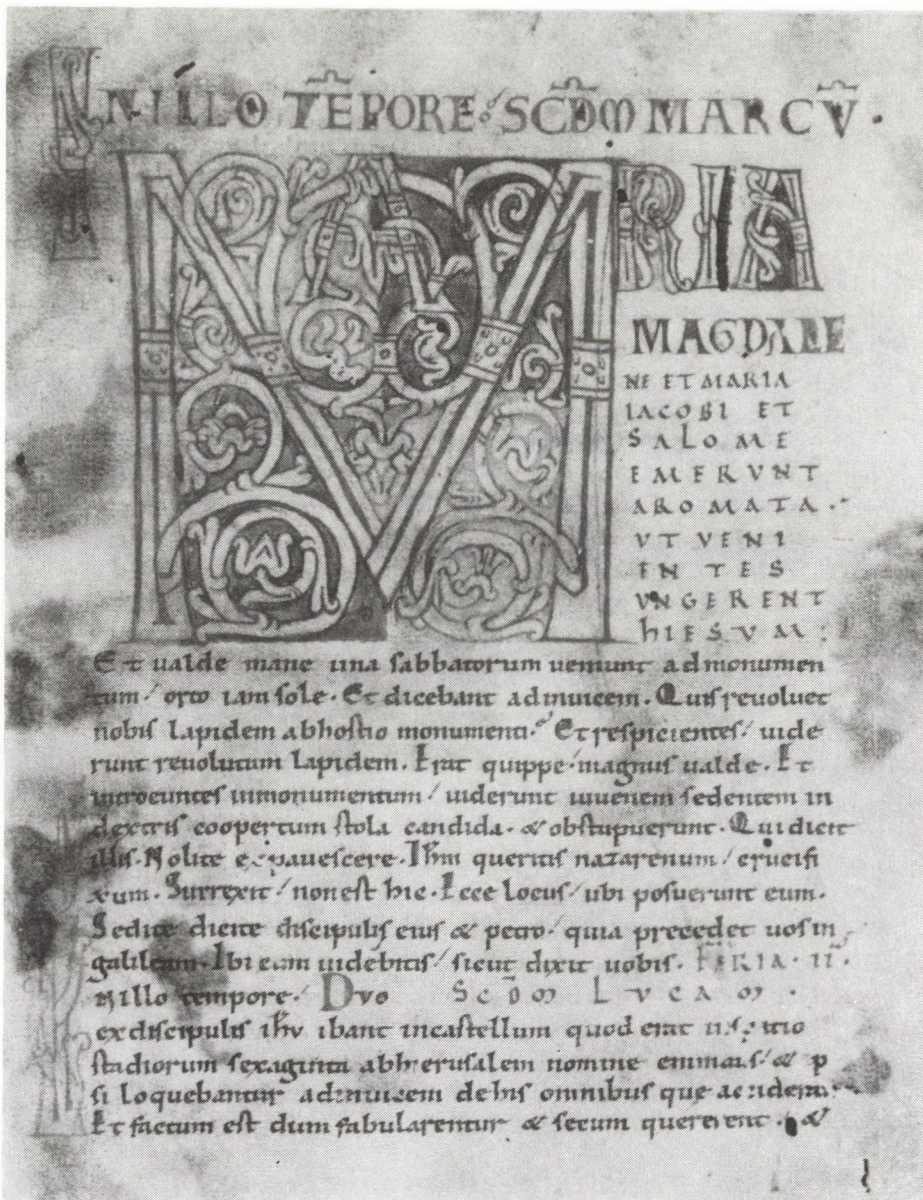 IN ILLO TĒPORE SCD̄M MARCV̄.
MARIA
MAGDALE
NE ET MARIA
IACOBI ET
SALOME
EMERVNT
AROMATA.
VT VENI
ENTES
VNGERENT
hIESVM:
Et ualde mane una sabbatorum ueniunt ad monumen
tum / orto iam sole. Et dicebant adinuicem. Quis reuoluet
nobis lapidem abhostio monumenti. Et respicientes / uide
runt reuolutum lapidem. Erat quippe magnus ualde. Et
introeuntes inmonumentum / uiderunt iuuenem sedentem in
dextris coopertum stola candida. & obstupuerunt. Qui dicit
illis. Nolite expauescere. Ihm̄ queritis nazarenum / crucifi
xum. Surrexit / non est hic. Ecce locus / ubi posuerunt eum.
Sed ite dicite discipulis eius & petro / quia precedet uos in
galileam. Ibi eum uidebitis / sicut dixit uobis. FERIA. II.
IN illo tempore. Dvo SCD̄M LVCAM.
ex discipulis ihv̄ ibant incastellum quod erat in spatio
stadiorum sexaginta abhierusalem nomine emmaus / & ip
si loquebantur adinuicem dehis omnibus que acciderant.
Et factum est dum fabularentur & secum quererent. &